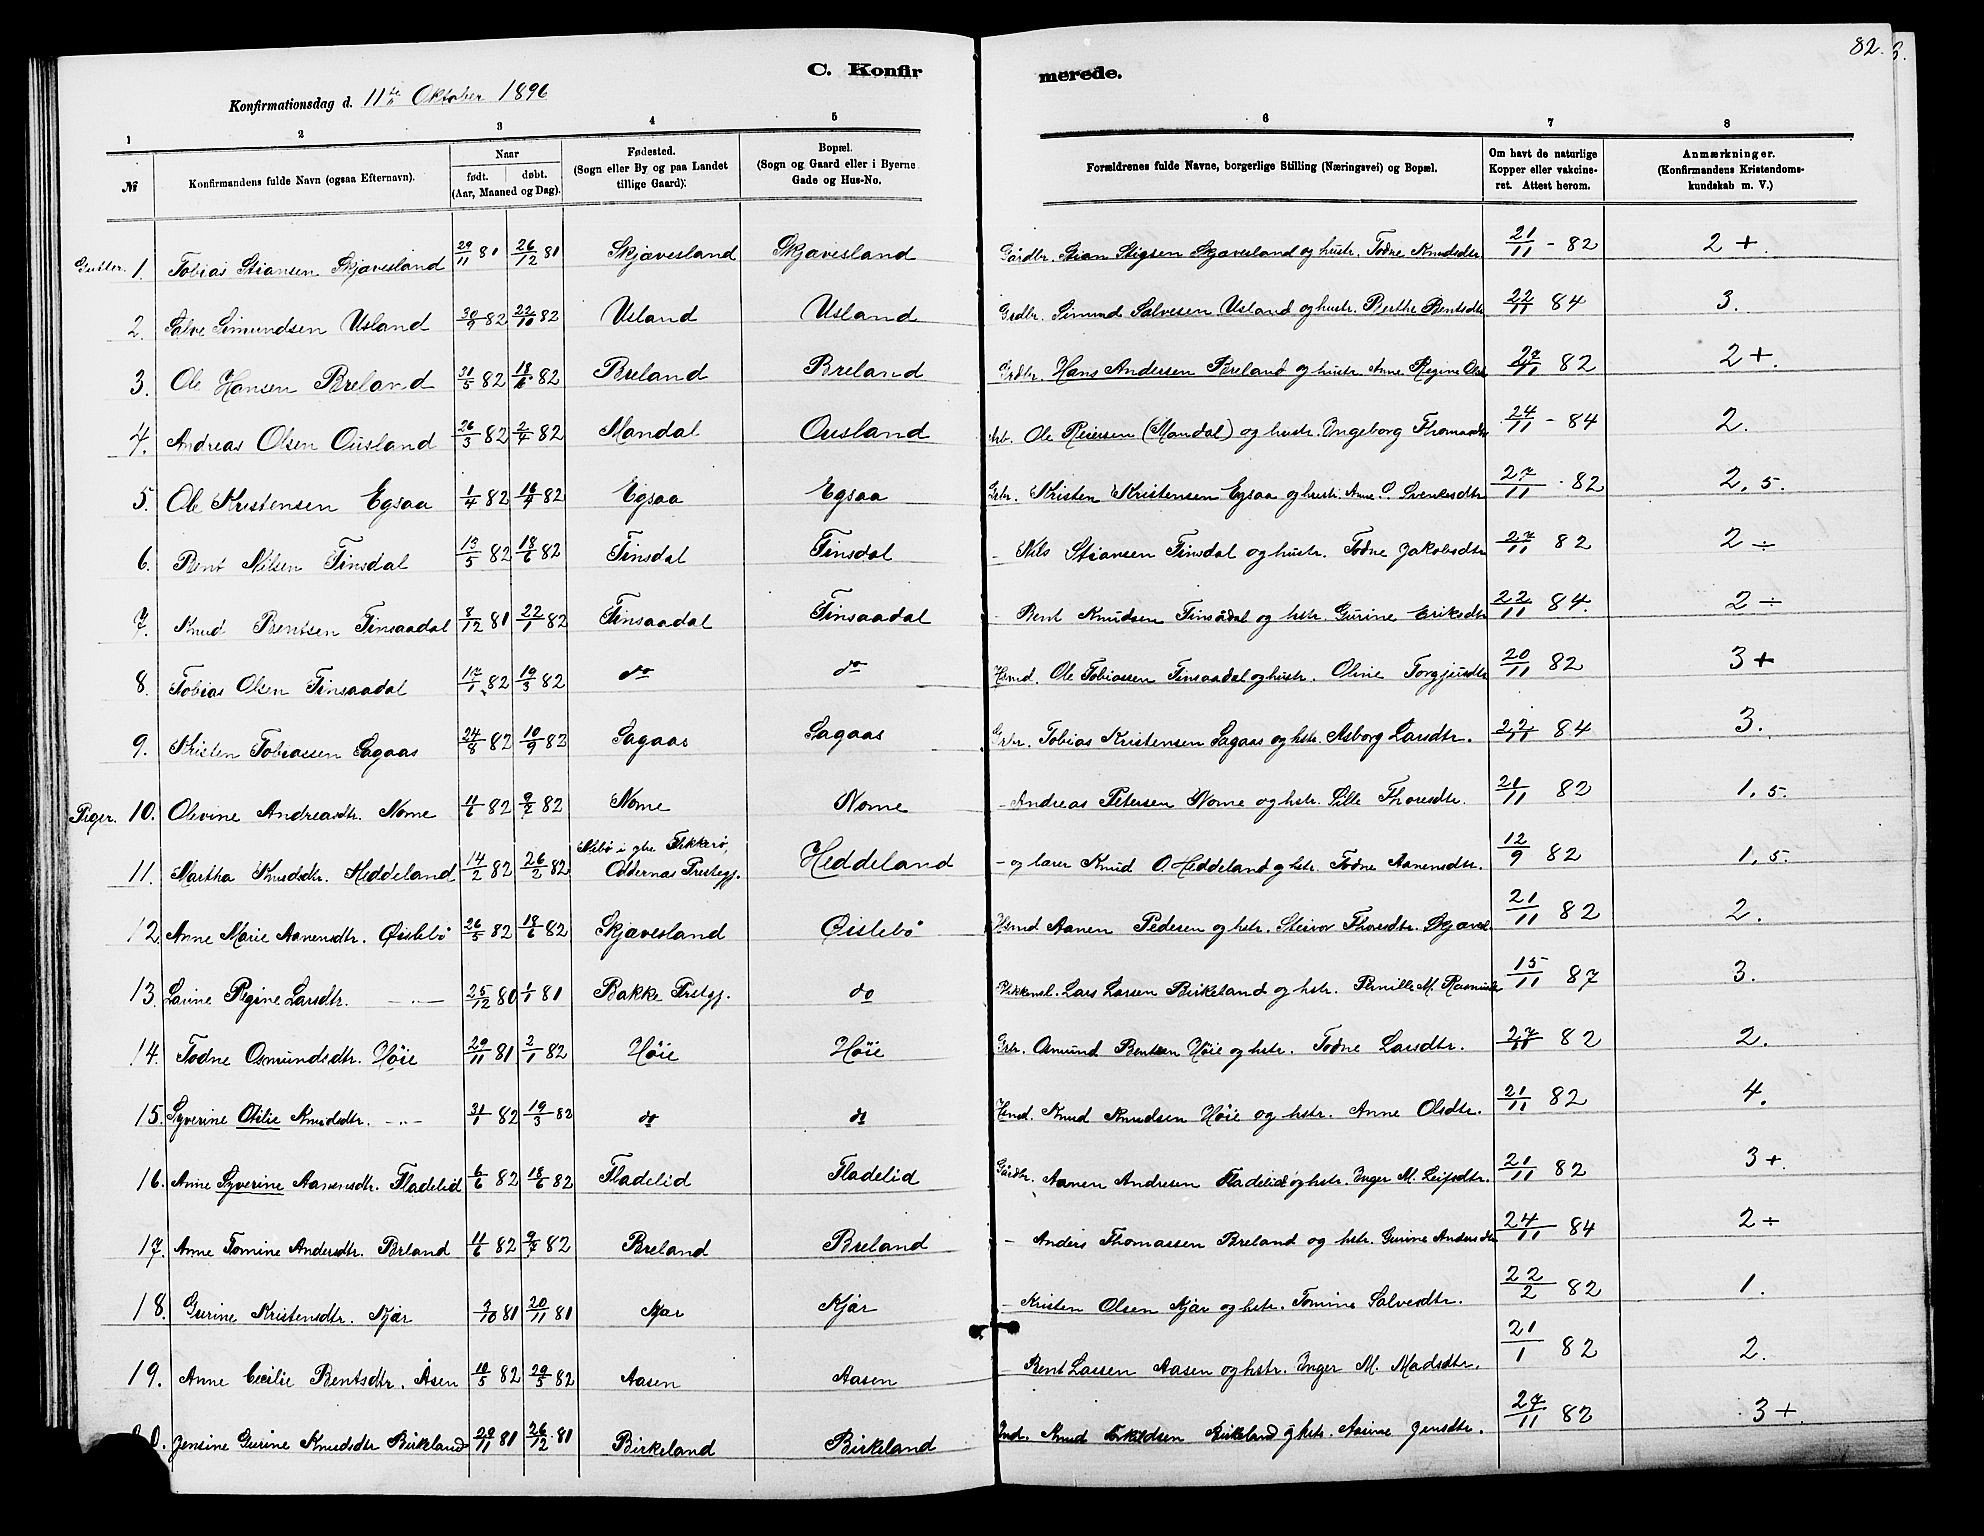 82.
C. Konfirmerede.
Konfirmationsdag d. 11te Oktober 1896
1 2 3 4 5 6 7 8
№ Konfirmandens fulde Navn (ogsaa Efternavn). Naar født. døbt. (Aar, Maaned og Dag). Fødested. (Sogn eller By og paa Landet tillige Gaard): Bopæl. (Sogn og Gaard eller i Byerne Gade og Hus-No. Forældrenes fulde Navne, borgerlige Stilling (Næringsvei) og Bopæl. Om havt de naturlige Kopper eller vakcineret. Attest herom. Anmærkninger. (Konfirmandens Kristendomskundskab m. V.)
Gutter. 1. Tobias Stiansen Skjævesland 29/11 81 26/12 81 Skjævesland Skjævesland Gårdbr. Stian Stigsen Skjævesland og hustr. Todne Knudsdtr 21/11 - 82 2 +.
2. Salve Simundsen Usland 30/9 82 22/10 82 Usland Usland Grdbr. Simund Salvesen Usland og hustr. Berthe Bentsdtr 22/11 84 3.
3. Ole Hansen Breland 31/5 82 18/6 82 Breland Breland Grdbr. Hans Andersen Breland og hustr. Anne Regine Olsd 27/11 82 2 +.
4. Andreas Olsen Ousland 26/3 82 2/4 82 Mandal Ousland Arb. Ole Reiersen (Mandal) og hustr. Ingeborg Thomasdtr 24/11 - 84 2.
5. Ole Kristensen Egsaa 1/4 82 16/4 82 Egsaa Egsaa Grbr. Kristen Kristensen Egsaa og hustr. Anne S. Svenkesdtr 27/11 - 82 2,5.
6. Bent Nilsen Finsdal 13/5 82 18/6 82 Finsdal Finsdal - Nils Stiansen Finsdal og hustr. Todne Jakobsdtr 27/11 82 2 ÷
7. Knud Bentsen Finsaadal 8/12 81 22/1 82 Finsaadal Finsaadal - Bent Knudsen Finsådal og hstr. Gurine Eriksdtr 22/11 84. 2 ÷
8. Tobias Olsen Finsaadal 17/1 82 19/3 82 do do Hsmd. Ole Tobiassen Finsaadal og hustr. Oline Torgjusdtr 20/11 82 3 +
9. Kristen Tobiassen Sagaas 24/8 82 10/9 82 Sagaas Sagaas Grbr. Tobias Kristensen Sagaas og hstr. Asborg Larsdtr. 22/11 84 3.
Piger. 10. Olevine Andreasdtr. Nome 11/6 82 9/7 82 Nome Nome - Andreas Petersen Nome og hstr. Sille Thoresdtr. 21/11 82 1,5.
11. Martha Knudsdtr. Heddeland 14/2 82 26/2 82 Flekkerø, Oddernas Prestegj. Heddeland - og lærer Knud O. Heddeland og hstr. Todne Aanensdtr. 12/9 82 1,5.
12. Anne Marie Aanensdtr. Øislebø 26/5 82 18/6 82 Skjævesland Øislebø Hsmd Aanen Pedesen og hstr. Steivor Thoresdtr. Skjævesl. 21/11 82 2.
13. Larine Regine Larsdtr. -"- 25/12 80 1/1 81 Bakke Prstgj. do Blikkensl. Lars Larsen Birkeland og hstr. Pernille M. Rasmusdtr 15/11 87 3.
14. Todne Osmundsdtr. Høie 29/11 81 2/1 82 Høie Høie Grbr. Osmund Bentsen Høie og hstr. Todne Larsdtr. 27/11 82 2.
15. Syverine Otilie Knudsdtr. -"- 31/1 82 19/3 82 do do Hsmd. Knud Knudsen Høie og hstr. Anne Olsdtr. 21/11 82 4.
16. Anne Syverine Aanensdtr. Fladelid 6/6 82 18/6 82 Fladelid Fladelid Gårdbr. Aanen Andresen Fladelid og hstr. Inger M. Leifsdtr. 21/11 82 3 +.
17. Anne Tomine Andersdtr. Breland 11/6 82 9/7 82 Breland Breland - Anders Thomassen Breland og hstr. Gurine Andersdtr 24/11 84 2 ÷
18. Gurine Kristensdtr. Kjær 7/10 81 20/11 81 Kjær Kjær - Kristen Olsen Kjær og hstr. Tomine Salvesdtr. 22/2 82 1.
19. Anne Cecilie Bentsdtr. Åsen 10/5 82 29/5 82 Aasen Aasen - Bent Lassen Aasen og hstr. Inger M. Madsdtr. 21/1 82 2.
20. Jensine Gurine Knudsdtr Birkeland 29/11 81 26/12 81 Birkeland Birkeland Ind. Knud Torkildsen Birkeland og hstr. Aasine Jensdtr. 27/11 82 3 +.